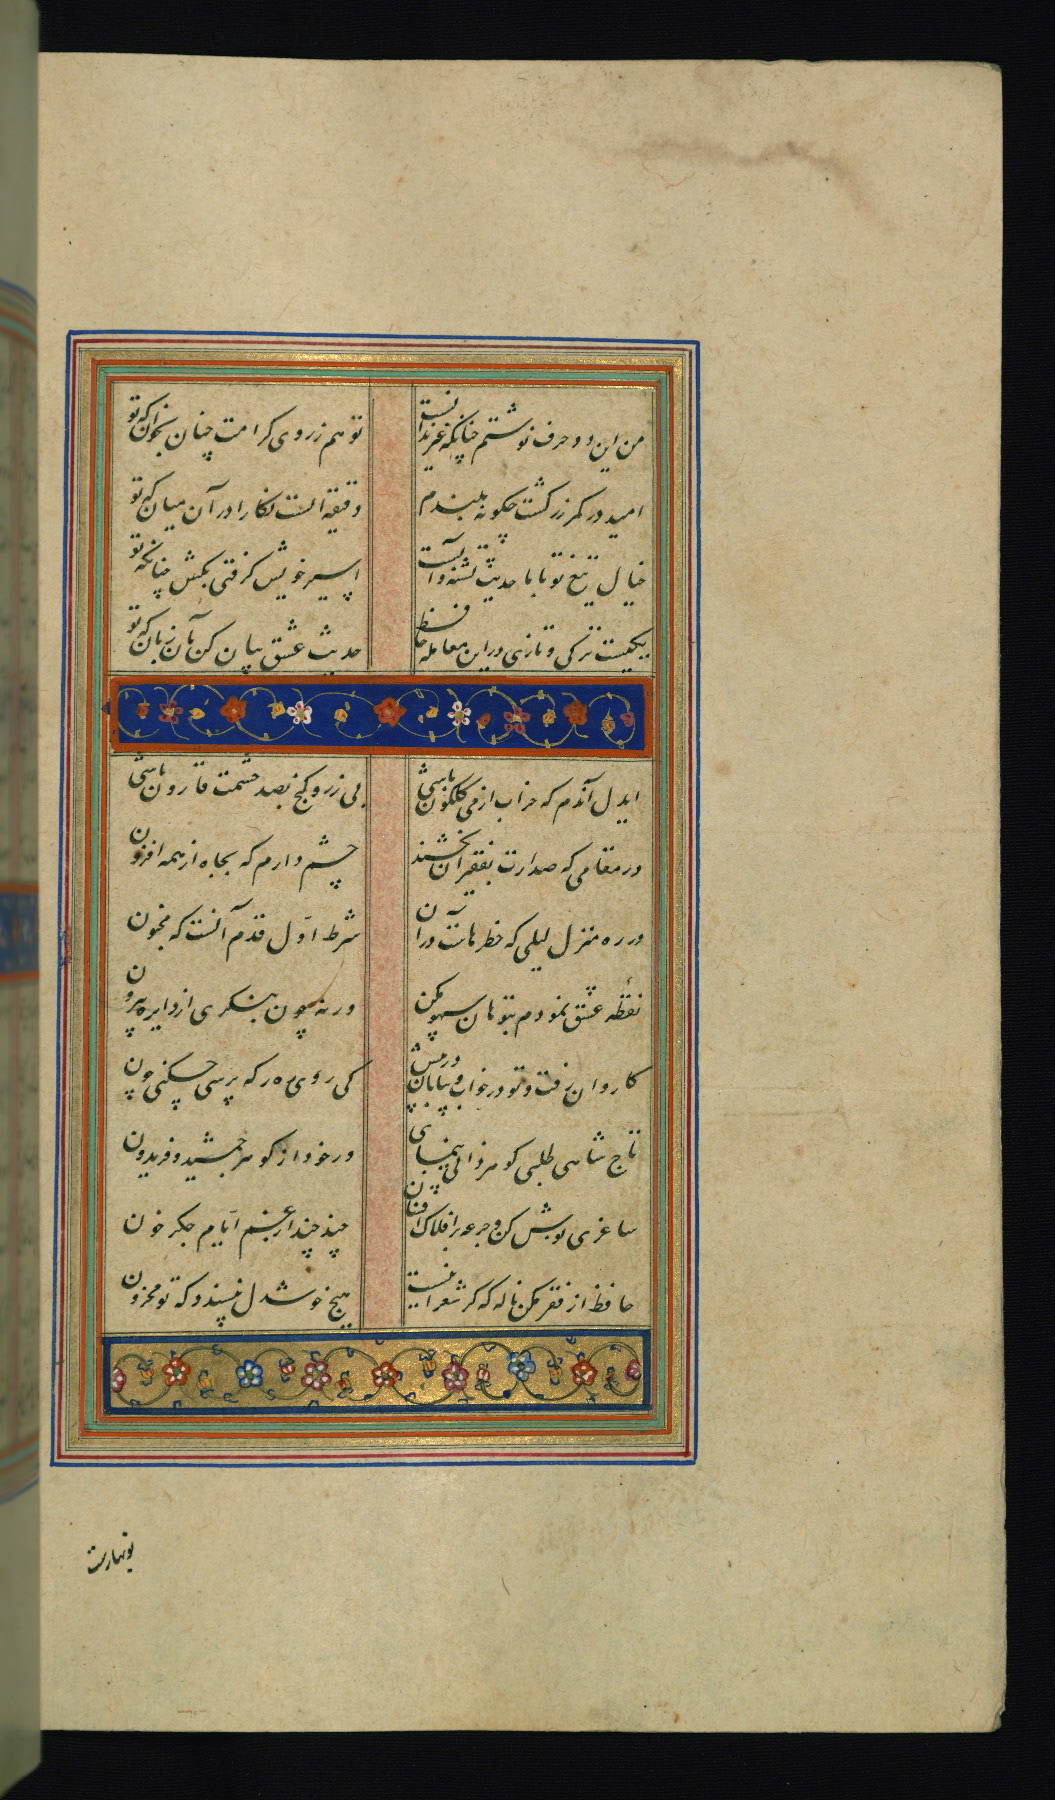 من این دو حرف نوشتم چنانکه غیر ندانست
تو هم ز روی کرامت چنان بخوان که تو دانی
امید در کمر زرکشت چگونه ببندم
دقیقه ایست نکارا در آن میان که تو
خیال تیغ تو با ما حدیث تشنه و آبست
اسیر خویش کرفتی بکش چنانکه تو
یکیست ترکی و تازی در این معامله حافظ
حدیث عشق بیان کن بآن زبان که تو
ایدل آندم که خراب از می کلکون باشی
بی زر و کنج بصد حشمت قارون باشی
در مقامی که صدارت بفقیران بخشند
چشم دارم که بجاه از همه افزون
در ره منزل لیلی که خطرهاست در آن
شرط اول قدم آنست که مجنون
نقطه عشق نمودم بتو هان سهو مکن
ورنه چون بنکری از دایره بیرون
کاروان رفت و تو در خواب و بیابان در پیش
کی روی ره ز که پرسی چکنی چون
تاج شاهی طلبی کوهر ذاتی بنمای
ور خود از کوهر جمشید و فریدون
ساغری نوش کن و جرعه بر افلاک افشان
چند چند از غم ایام جکر خون
حافظ از فقر مکن ناله که کر شعر اینست
هیچ خوشدل نپسندد که تو محزون
نوبهارست